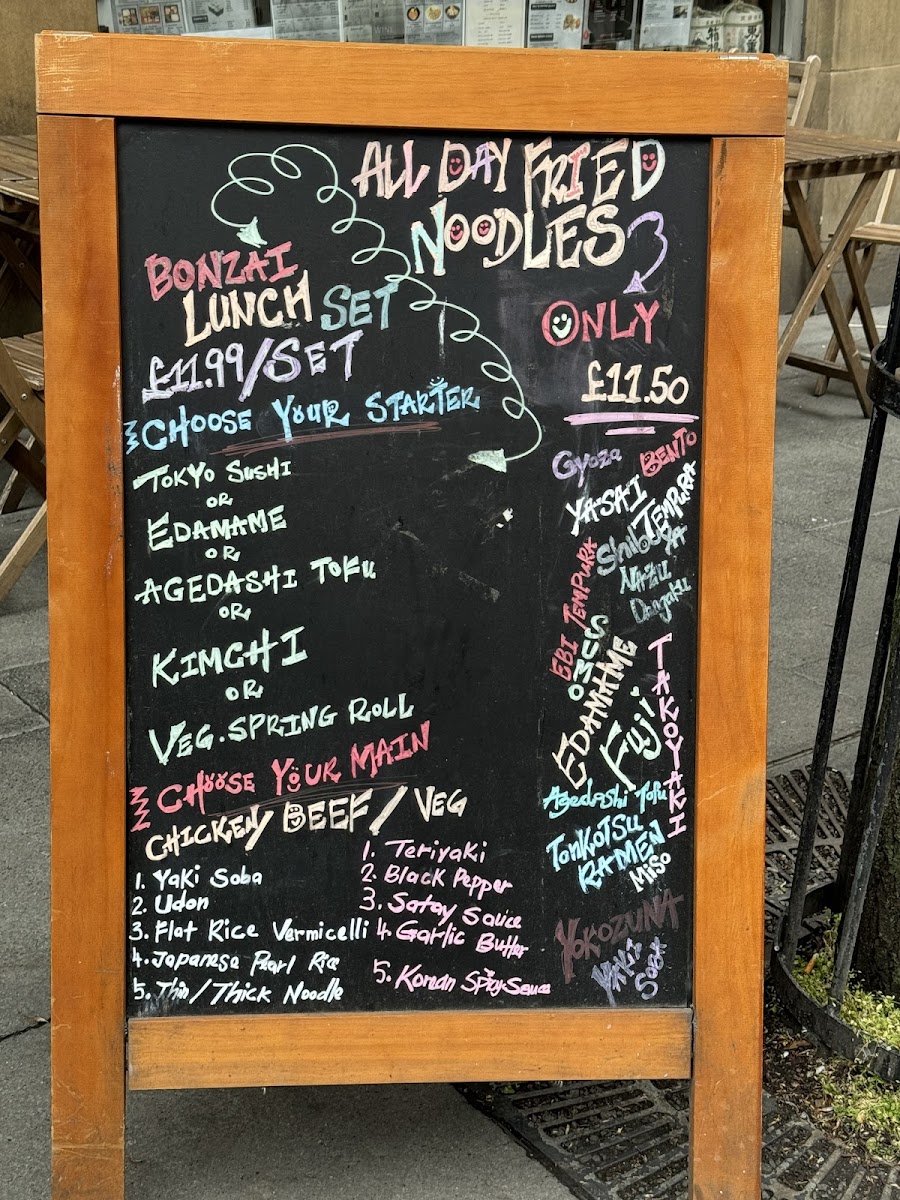 ALL DAY FRIED
NOODLES
ONLY
£11.50
BONZAI
LUNCH SET
£11.99/SET
CHOOSE YOUR STARTER
TOKYO SUSHI
OR
EDAMAME
OR
AGEDASHI TOFU
OR
KIMCHI
OR
VEG. SPRING ROLL
CHOOSE YOUR MAIN
CHICKEN/BEEF/VEG
1. Yaki Soba
2. Udon
3. Flat Rice Vermicelli
4. Japanese Pearl Rice
5. Thin/Thick Noodle
1. Teriyaki
2. Black Pepper
3. Satay Sauce
4. Garlic Butter
5. Korean Spicy Sauce
Gyoza
BENTO
YASAI
TEMPURA
EBI TEMPURA
NAZU
SUMO
EDAMAME
Fuji
TAKOYAKI
Agedashi Tofu
TONKOTSU
RAMEN
MISO
YOKOZUNA
YAKI
SOBA